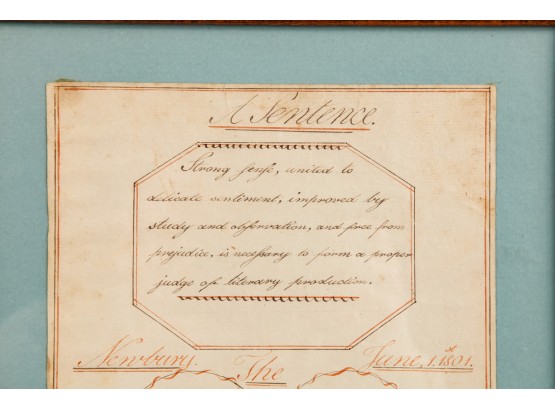 A Sentence.
Strong senſe, united to
delicate sentiment, improved by
study and obſervation, and free from
prejudice, is neceſsary to form a proper
judge of literary production.
Newbury. The June, 1.st 1801.